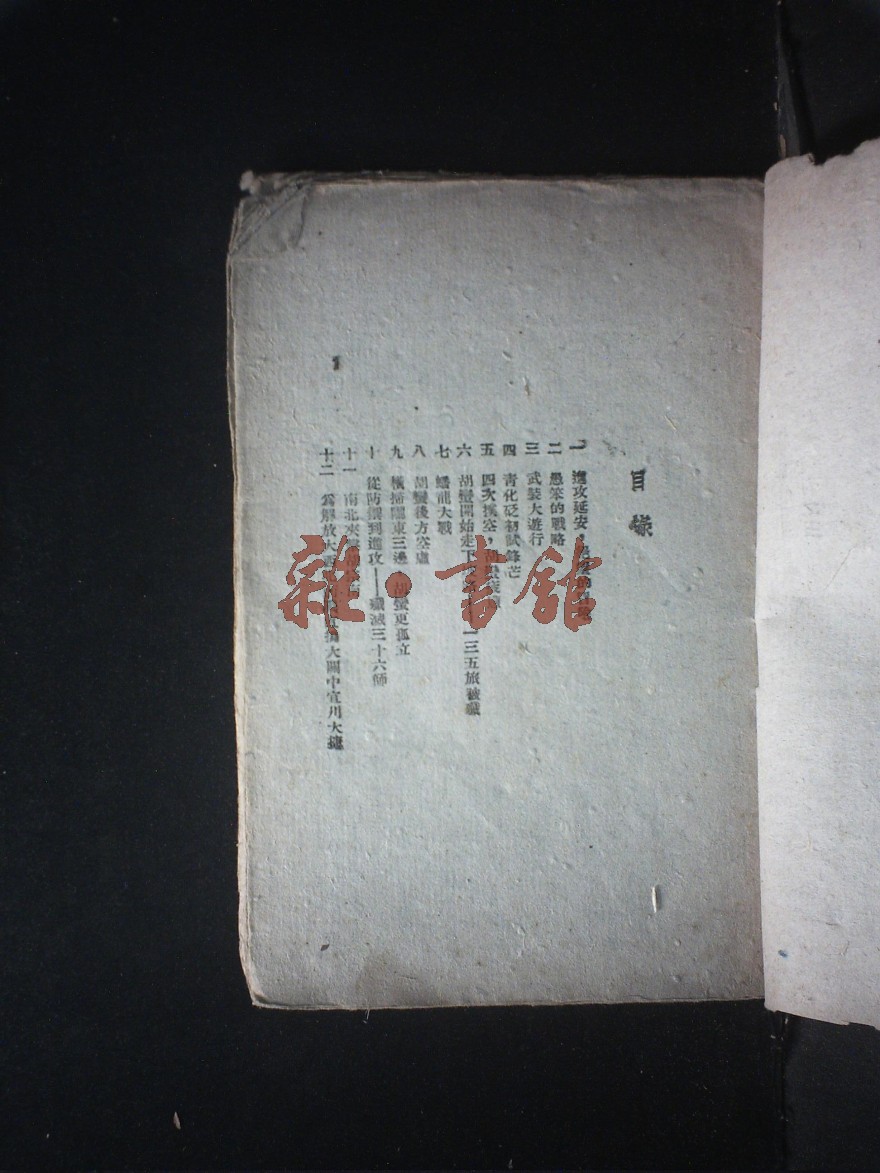 目錄
一 進攻延安，
二 愚笨的戰略
三 武裝大遊行
四 青化砭初試鋒芒
五 四次撲空，胡蠻
六 胡蠻開始走下 一三五旅被殲
七 蟠龍大戰
八 胡蠻後方空虛
九 橫掃隴東三邊，胡蠻更孤立
十 從防禦到進攻——殲滅三十六師
十一 南北夾
十二 為解放大西 大關中宜川大捷
雜·書館